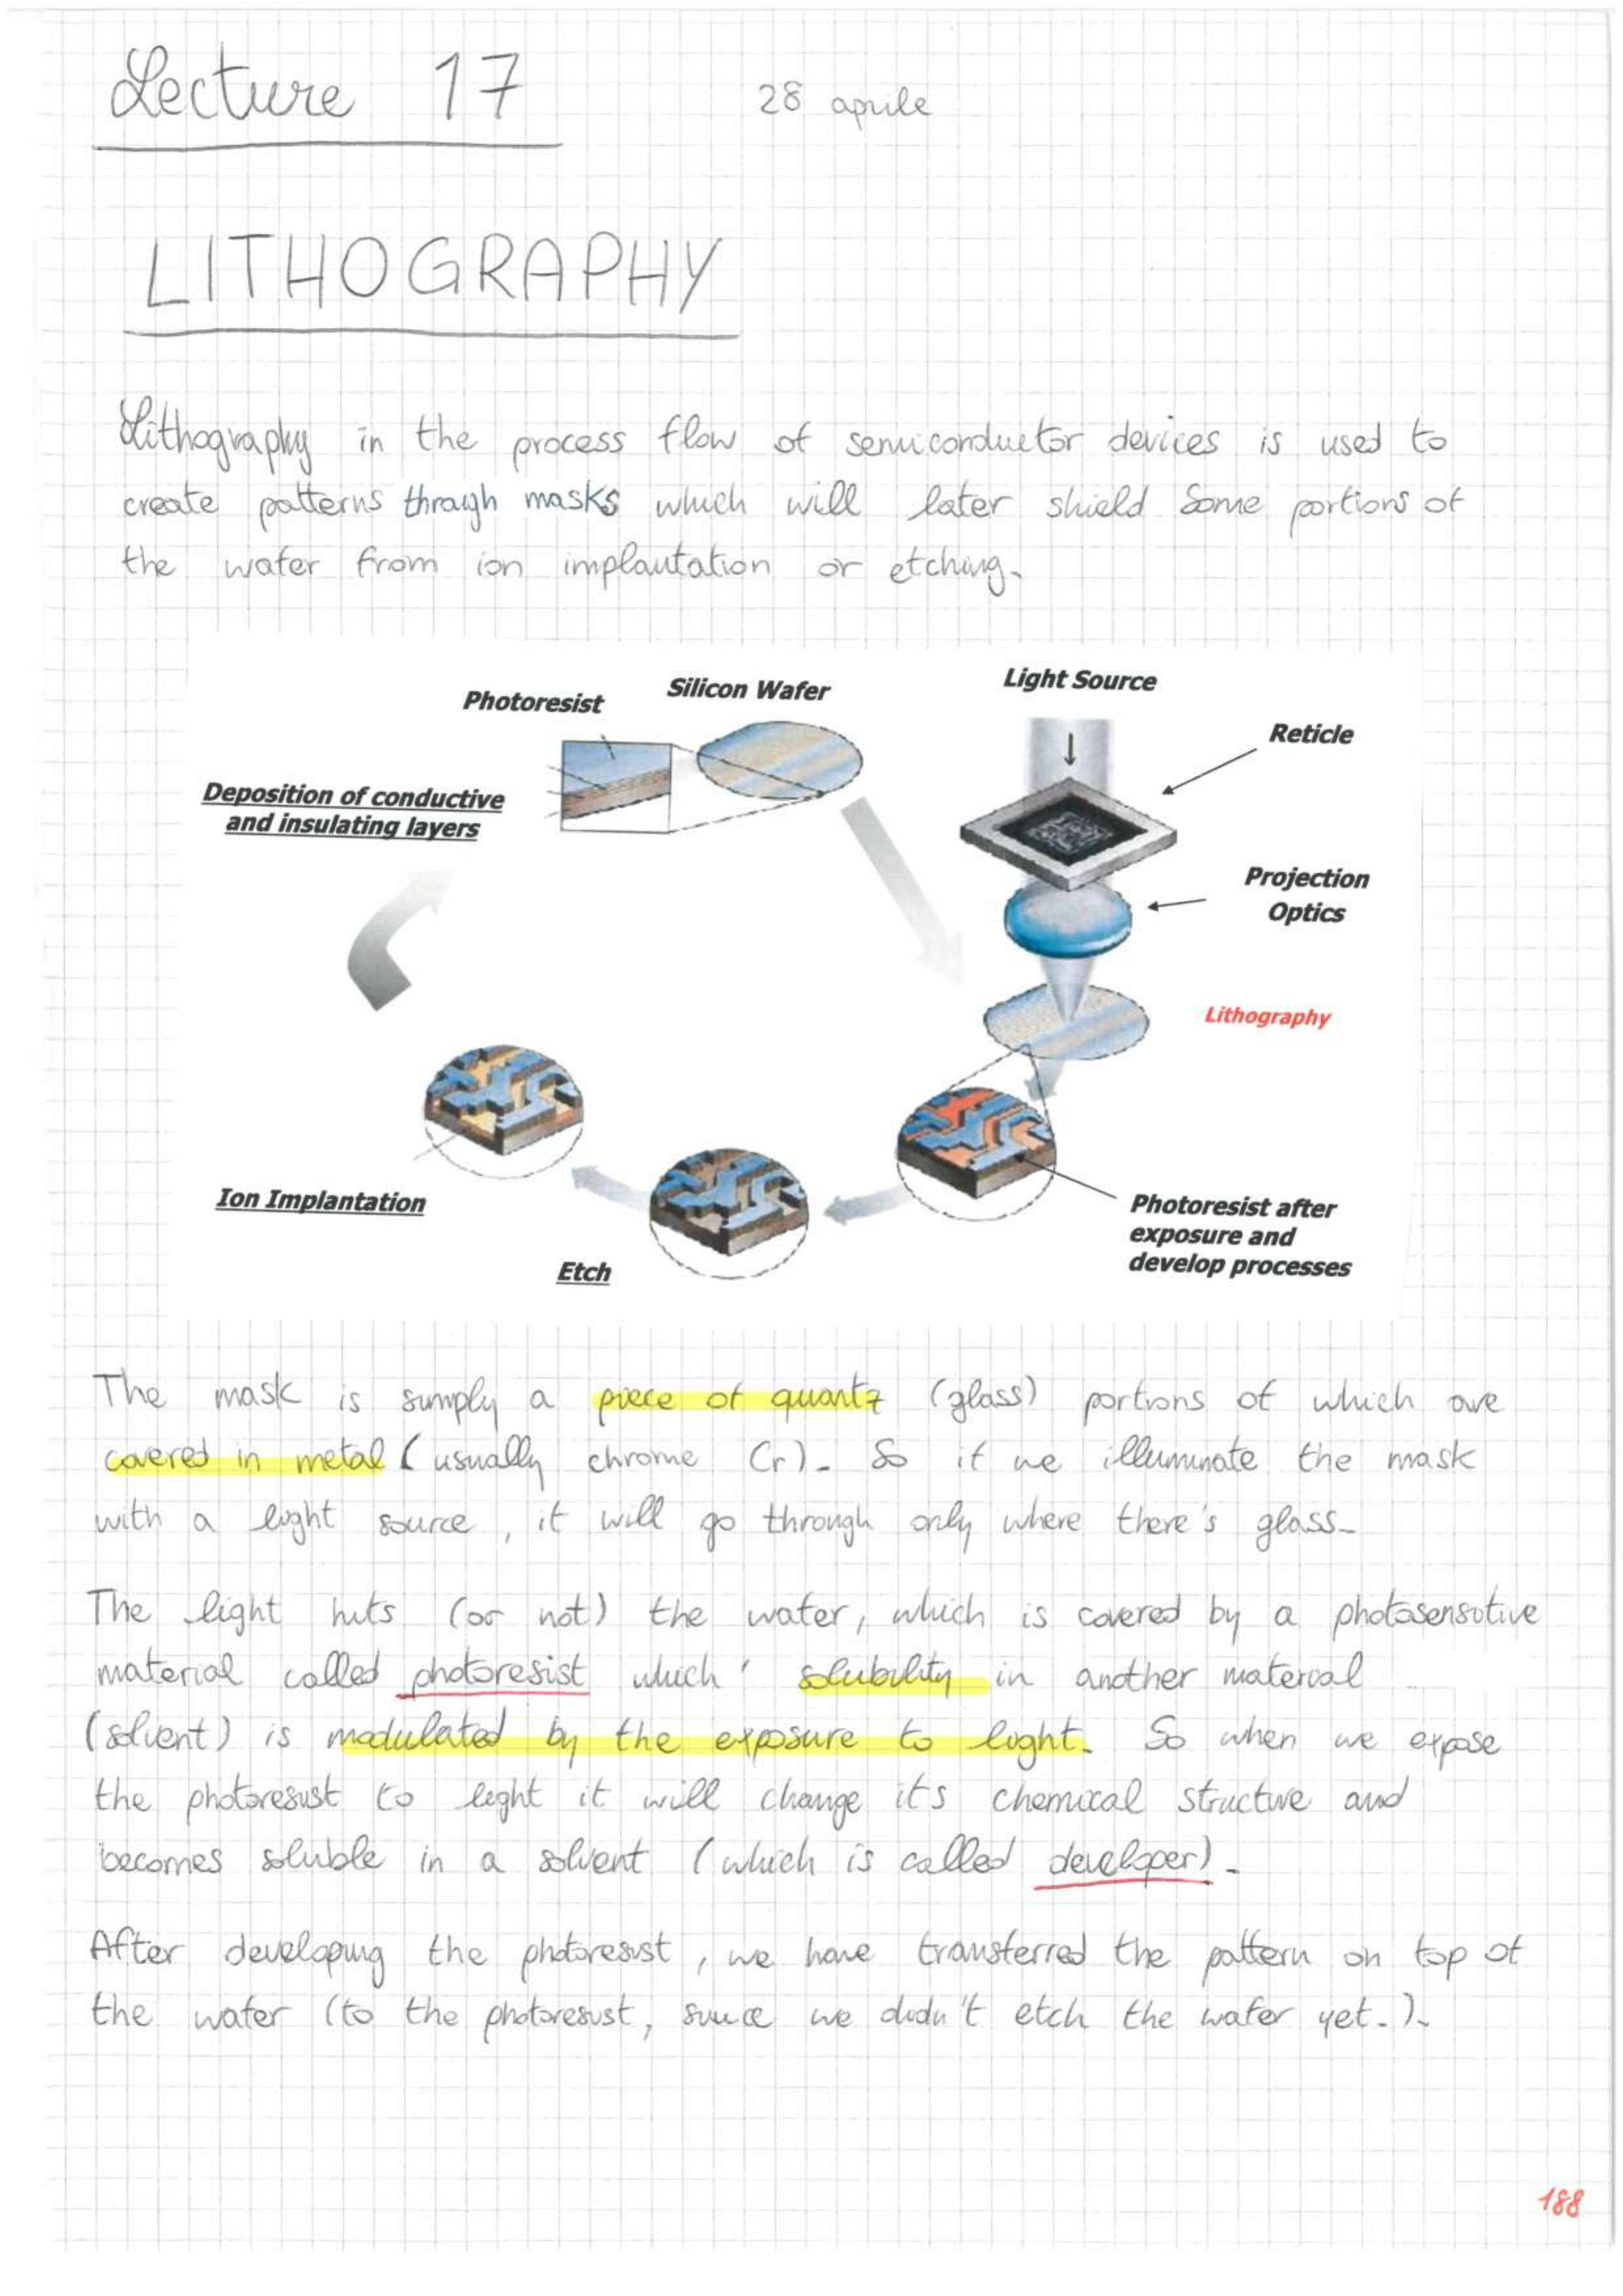 Lecture 17
28 aprile
LITHOGRAPHY
Lithography in the process flow of semiconductor devices is used to
create patterns through masks which will later shield some portions of
the wafer from ion implantation or etching.
Photoresist
Silicon Wafer
Light Source
Reticle
Deposition of conductive
and insulating layers
Projection
Optics
Lithography
Ion Implantation
Etch
Photoresist after
exposure and
develop processes
The mask is simply a piece of quartz (glass) portions of which are
covered in metal (usually chrome Cr). So if we illuminate the mask
with a light source, it will go through only where there's glass.
The light hits (or not) the wafer, which is covered by a photosensitive
material called photoresist which' solubility in another material
(solvent) is modulated by the exposure to light. So when we expose
the photoresist to light it will change its chemical structure and
becomes soluble in a solvent (which is called developer).
After developing the photoresist, we have transferred the pattern on top of
the wafer (to the photoresist, since we didn't etch the wafer yet.).
188